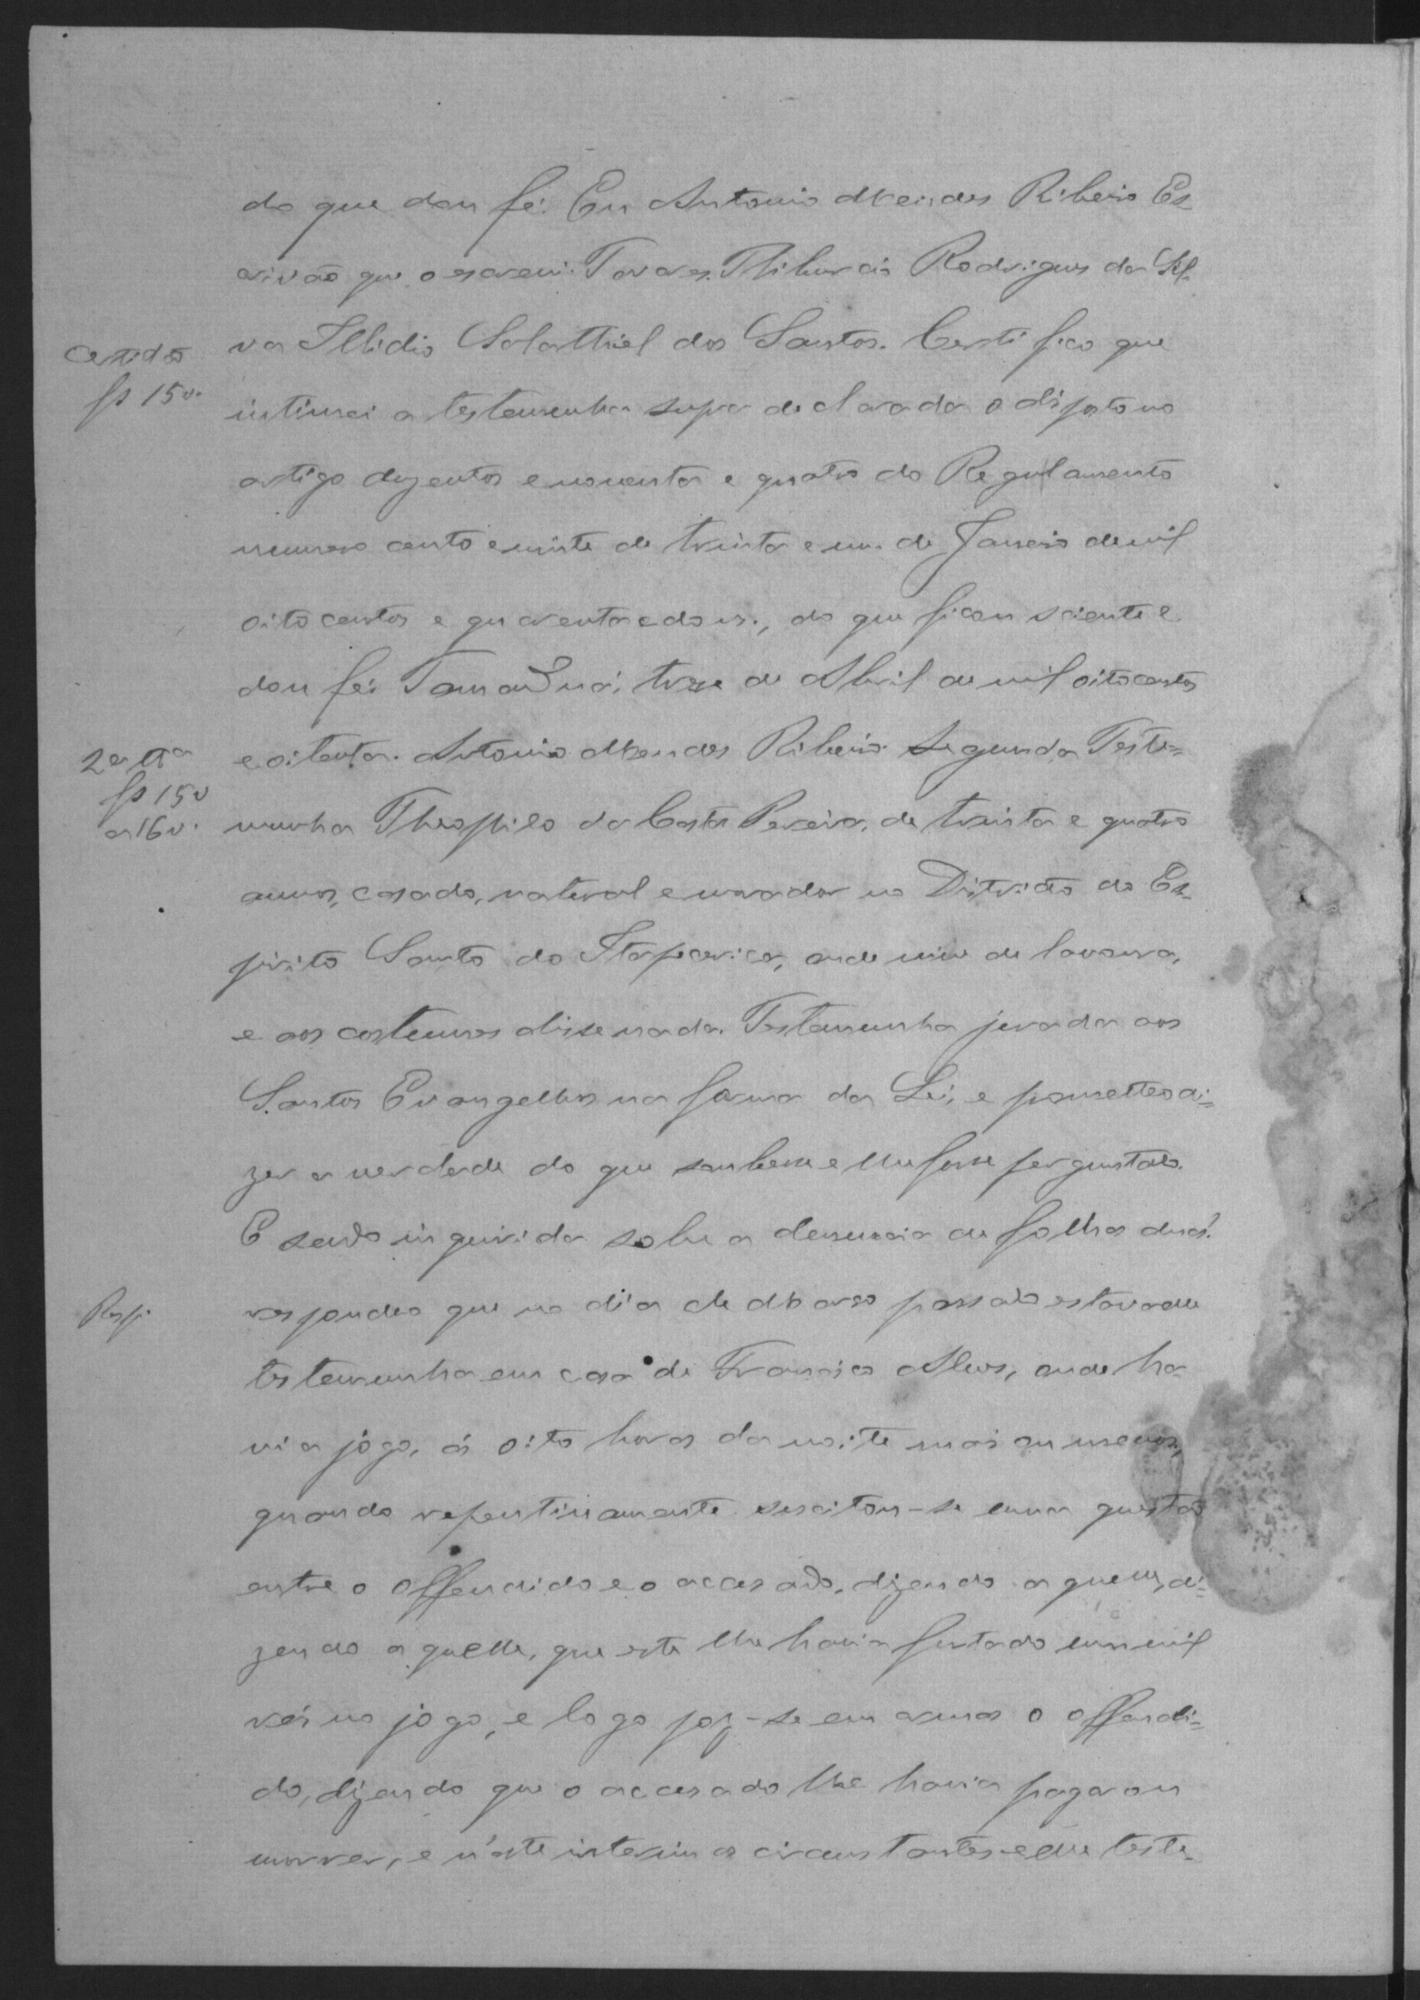 do que dou fé. Eu Antonio Mendes Ribeiro Es-
crivão que o escrevi. Tavares. Thiburcio Rodrigues da Sil-
Certidão
fs 15v.
va Illidio Salathiel dos Santos. Certifico que
intimei a testemunha supra declarada o disposto no
artigo duzentos e noventa e quatro do Regulamento
numero cento e vinte de trinta e um de Janeiro de mil
oito centos e quarenta e dous, do que ficou sciente e
dou fé. Tamanduá, treze de Abril de mil oitocentos
2ª Tª
fs 15v
a 16v.
e oitenta. Antonio Mendes Ribeiro. Segunda Teste=
munha Theophilo da Costa Pereira, de trinta e quatro
annos, casado, natural e morador no Districto do Es-
pirito Santo do Itapecerica, onde vive de lavoura,
e aos costumes disse nada. Testemunha jurada aos
Santos Evangelhos na forma da Lei, e prometteo di=
zer a verdade do que soubesse e lhe fosse perguntado.
E sendo inquirida sobre a denuncia de folhas duas.
Resp.
respondeo que no dia de Março passado estava elle
testemunha em casa de Francisco Alves, onde ha-
via jogo, ás oito horas da noite mais ou menos,
quando repentinamente suscitou-se uma questão
entre o offendido e o accusado, dizendo a quem, di=
zendo aquelle, que este lhe havia furtado um mil
réis no jogo, e logo poz-se em armas o offendi=
do, dizendo que o accusado lhe havia pagar ou
morrer, e n'este interim os circunstantes e elle teste-